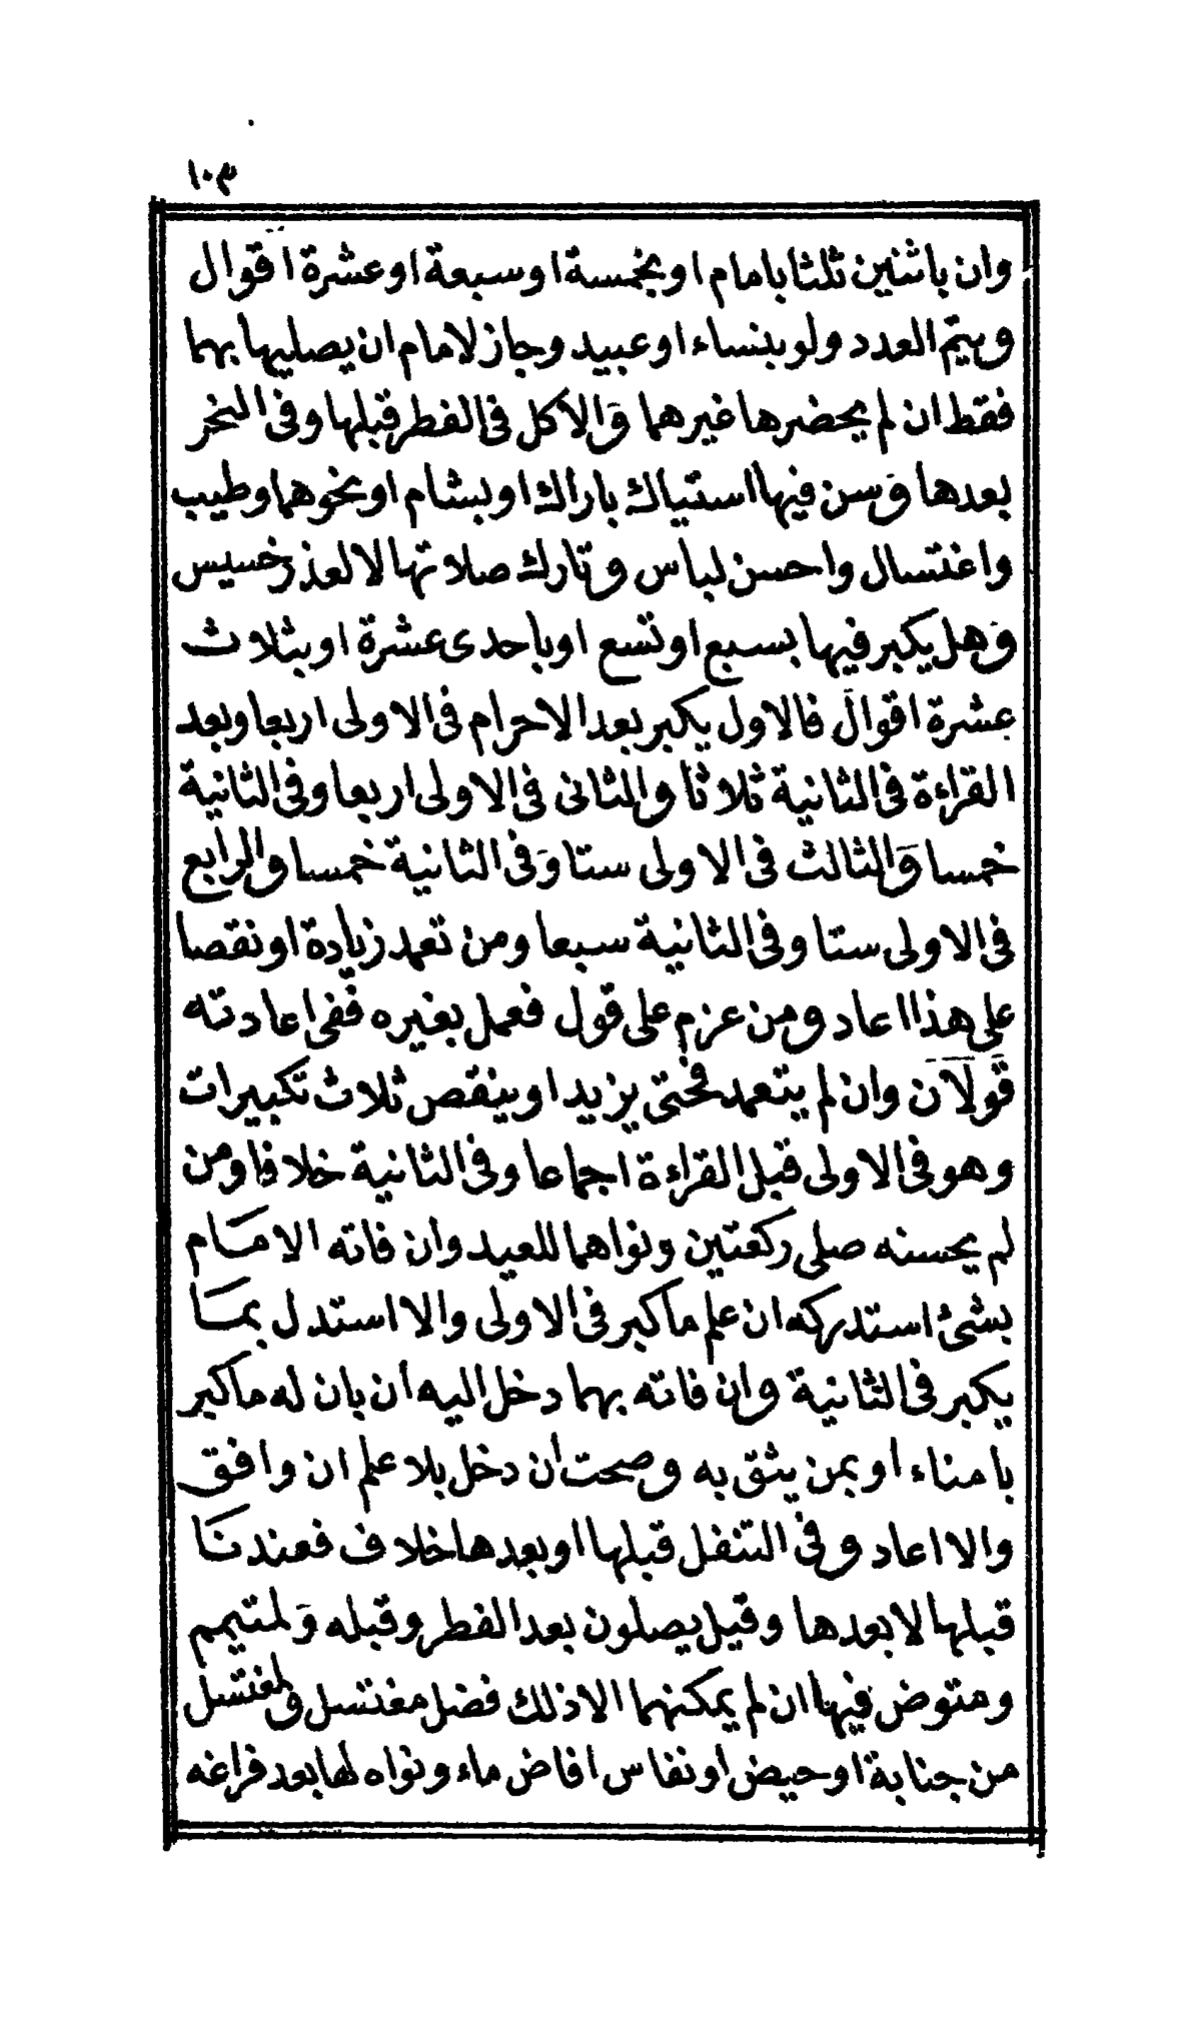 ١٠٣
وان باثنين ثلثا بامام او بخمسة او سبعة او عشرة اقوال
ويتم العدد ولو بنساء او عبيد وجاز لامام ان يصليها بهما
فقط ان لم يحضرها غيرهما والاكل فى الفطر قبلها وفى النحر
بعدها وسن فيها استياك باراك او بشام او نحوهما وطيب
واغتسال واحسن لباس وتارك صلاتها لا لعذر خسيس
وهل يكبر فيها بسبع او تسع او باحدى عشرة او بثلاث
عشرة اقوال فالاول يكبر بعد الاحرام فى الاولى اربعا وبعد
القراءة فى الثانية ثلاثا والثانى فى الاولى اربعا وفى الثانية
خمسا والثالث فى الاولى ستا وفى الثانية خمسا والرابع
فى الاولى ستا وفى الثانية سبعا ومن تعمد زيادة او نقصا
على هذا اعاد ومن عزم على قول فعمل بغيره ففى اعادته
قولان وان لم يتعمد فحتى يزيد او ينقص ثلاث تكبيرات
وهو فى الاولى قبل القراءة اجماعا وفى الثانية خلافا ومن
لم يحسنه صلى ركعتين ونواهما للعيد وان فاته الامام
بشئ استدركه ان علم ما كبر فى الاولى والا استدل بما
يكبر فى الثانية وان فاته بهما دخل اليه ان بان له ما كبر
بامناء او بمن يثق به وصحت ان دخل بلا علم ان وافق
والا اعاد وفى التنفل قبلها او بعدها خلاف فعندنا
قبلها لا بعدها وقيل يصلون بعد الفطر وقبله ولمتيمم
ومتوض فيها ان لم يمكنهما الا ذلك فضل مغتسل ولمغتسل
من جنابة او حيض او نفاس افاض ماء ونواه لها بعد فراغه